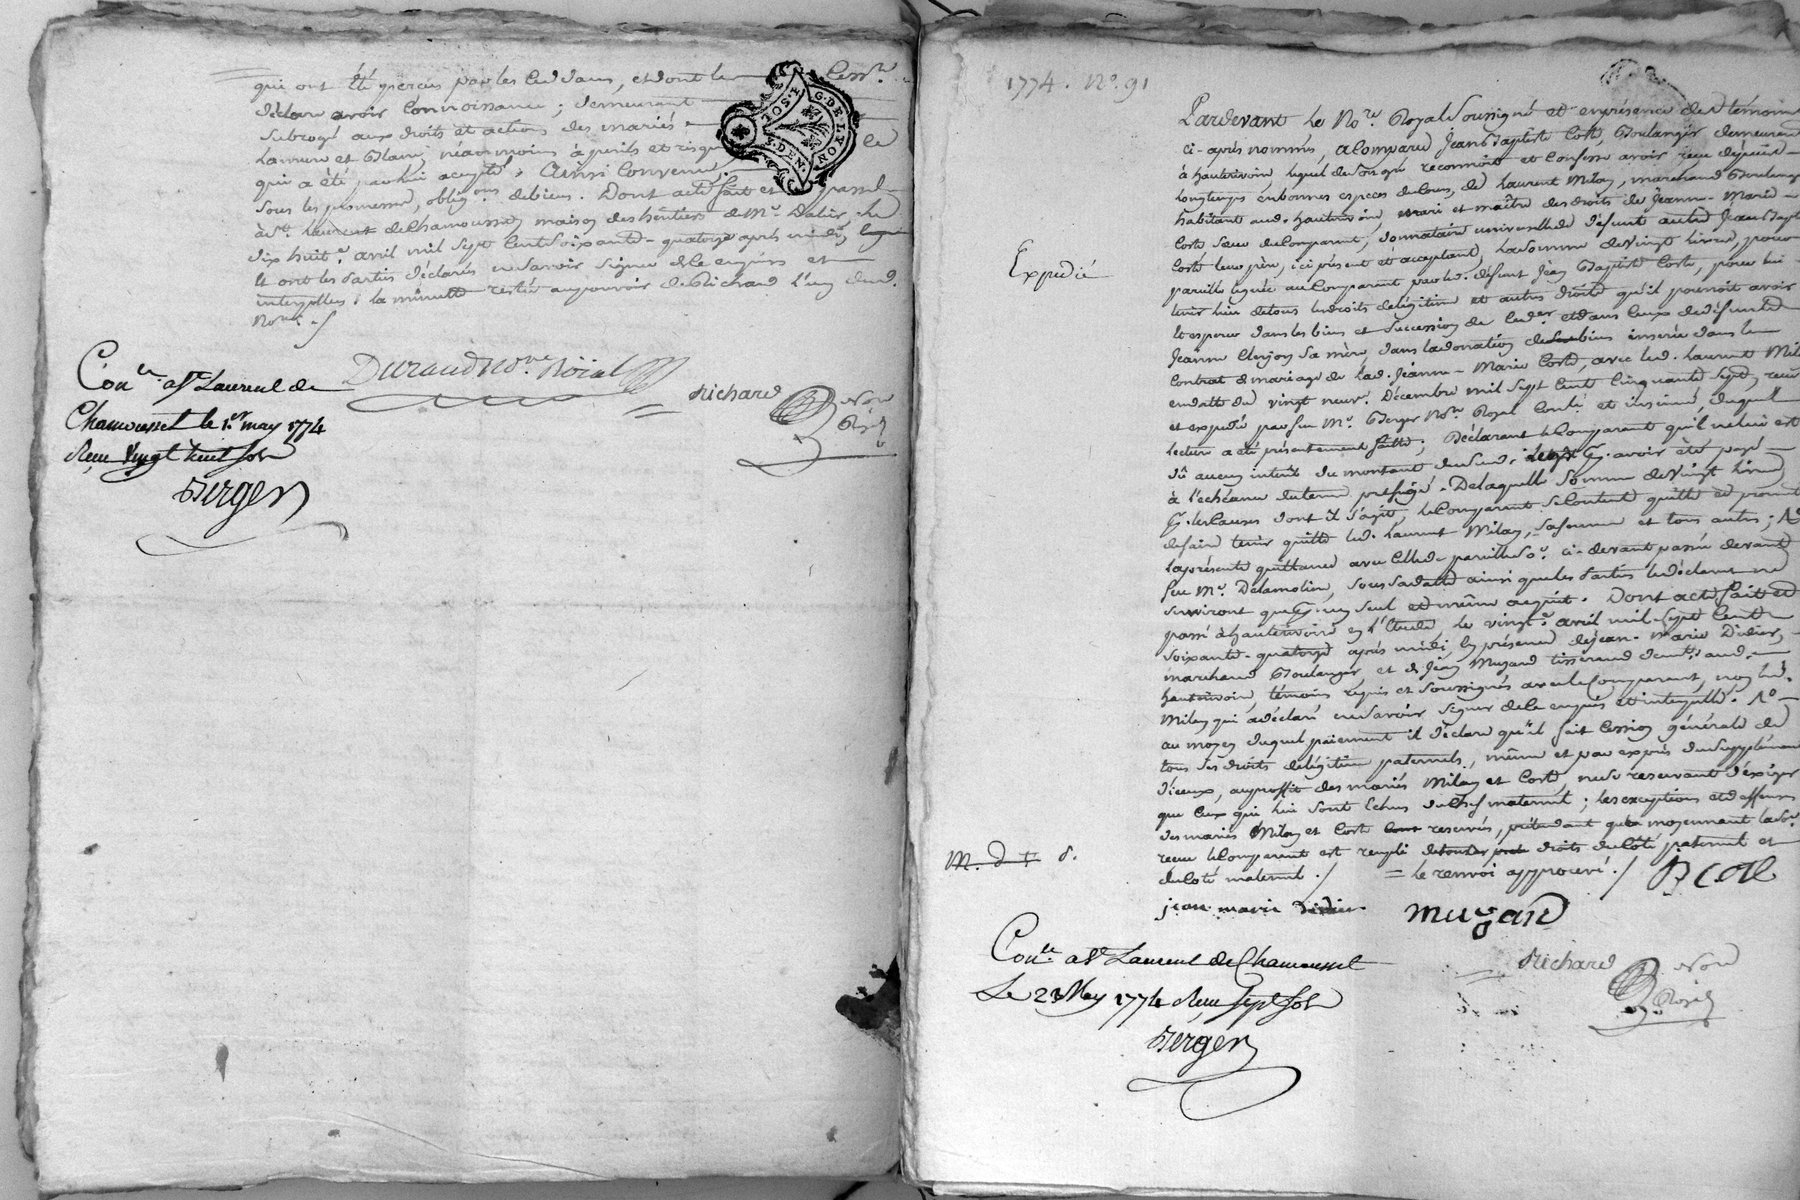 qui ont été perçus par les cédans, et dont le cess.re
déclare avoir connoissance ; demeurant
subrogé aux droits et actions des mariés
et Blanc, néammoins à perils et risques le
qui a été par lui accepté. Ainsi convenu,
sous les promesses, oblig.ons de biens. Dont acte fait et passé
à S.t Laurent de Chamousset maison des héritiers de M.r Dalier, le
dix huit.e avril mil sept cent soixante-quatorze après midi,
et ont les parties déclaré ne savoir signer de ce enquis et
interpellées ; la minutte restée au pouvoir de Richard l'un desd.
No.res ./
Durand No.re Roial
Richard No.re Royal
Con.lé a S.t Laurent de
Chamousset le 1.er may 1774
Reçu vingt huit sols
Berger
G. DE LYON
2. DEN.
1774. N.o 91
Expedié
Pardevant le No.re Royal soussigné et en présence des témoins
ci-après nommés, a comparu Jean Baptiste Coste, Boulanger demeurant
à hauterivoire, lequel de son gré reconnoît et confesse avoir reçu depuis
longtemps en bonnes especes de cours, de Laurent Milan, marchand Boulanger
habitant aud. hauterivoire, mari et maître des droits de Jeanne-Marie
Coste sœur du comparant, donnataire universelle de défunt autre Jean Bapt.
Coste leur père, ici présent et acceptant, la somme de vingt livres, pour
pareille léguée au comparant par led. défunt Jean Baptiste Coste, pour lui
tenir lieu de tous les droits de légitime et autres droits qu'il pouvoit avoir
et esperer dans les biens et succession de ced.er et dans ceux de défunte
Jeanne Clerjon sa mère, dans la donation de ses biens inserée dans le
contrat de mariage de lad. Jeanne-Marie Coste, avec led. Laurent Milan
en datte du vingt neuv.e Décembre mil sept cent cinquante sept, reçu
et expedié par feu M.e Berger No.re Royal conlé et insinué, duquel
lecture a été présentement faitte ; Déclarant le comparant qu'il ne lui est
dû aucun intérêt du montant dud. avoir été payé
à l'échéance du terme préfigé. De laquelle somme de vingt livres
les causes dont il s'agit, le comparant se contente quitte et promet
de faire tenir quitte led. Laurent Milan, sa femme et tous autres ;
la présente quittance avec celle de pareille so.e ci-devant passée devant
feu M.e Delamolin, sous sa datte ainsi que les parties le déclarent ne
serviront que un seul et même acquit. Dont acte fait et
passé à hauterivoire en l'étude le vingt.e avril mil-sept cent
soixante-quatorze après midi en présence de Jean-Marie Didier,
marchand Boulanger, et de Jean Muzard tisserand dem.ts aud.
hauterivoire, témoins requis et soussignés avec le comparant, non led.
Milan qui a déclaré ne savoir signer de ce enquis et interpellé.
au moyen duquel paiement il déclare qu'il fait cession générale de
tous ses droits de légitime paternels, même et par exprès du supplément
d'iceux, au proffit des mariés Milan et Coste, ne se reservant d'exiger
que ceux qui lui sont échus du chef maternel ; les exceptions et deffenses
des mariés Milan et Coste reservés, prétendant que moyennant la so.e
reçue le comparant est rempli de droits du côté paternel et
du côté maternel ./ = le renvoi approuvé ./ B Coste
jean marie didier muzard
Richard No.re Royal
Con.lé a S.t Laurent de Chamousset
Le 23 May 1774 Reçu sept sols
Berger